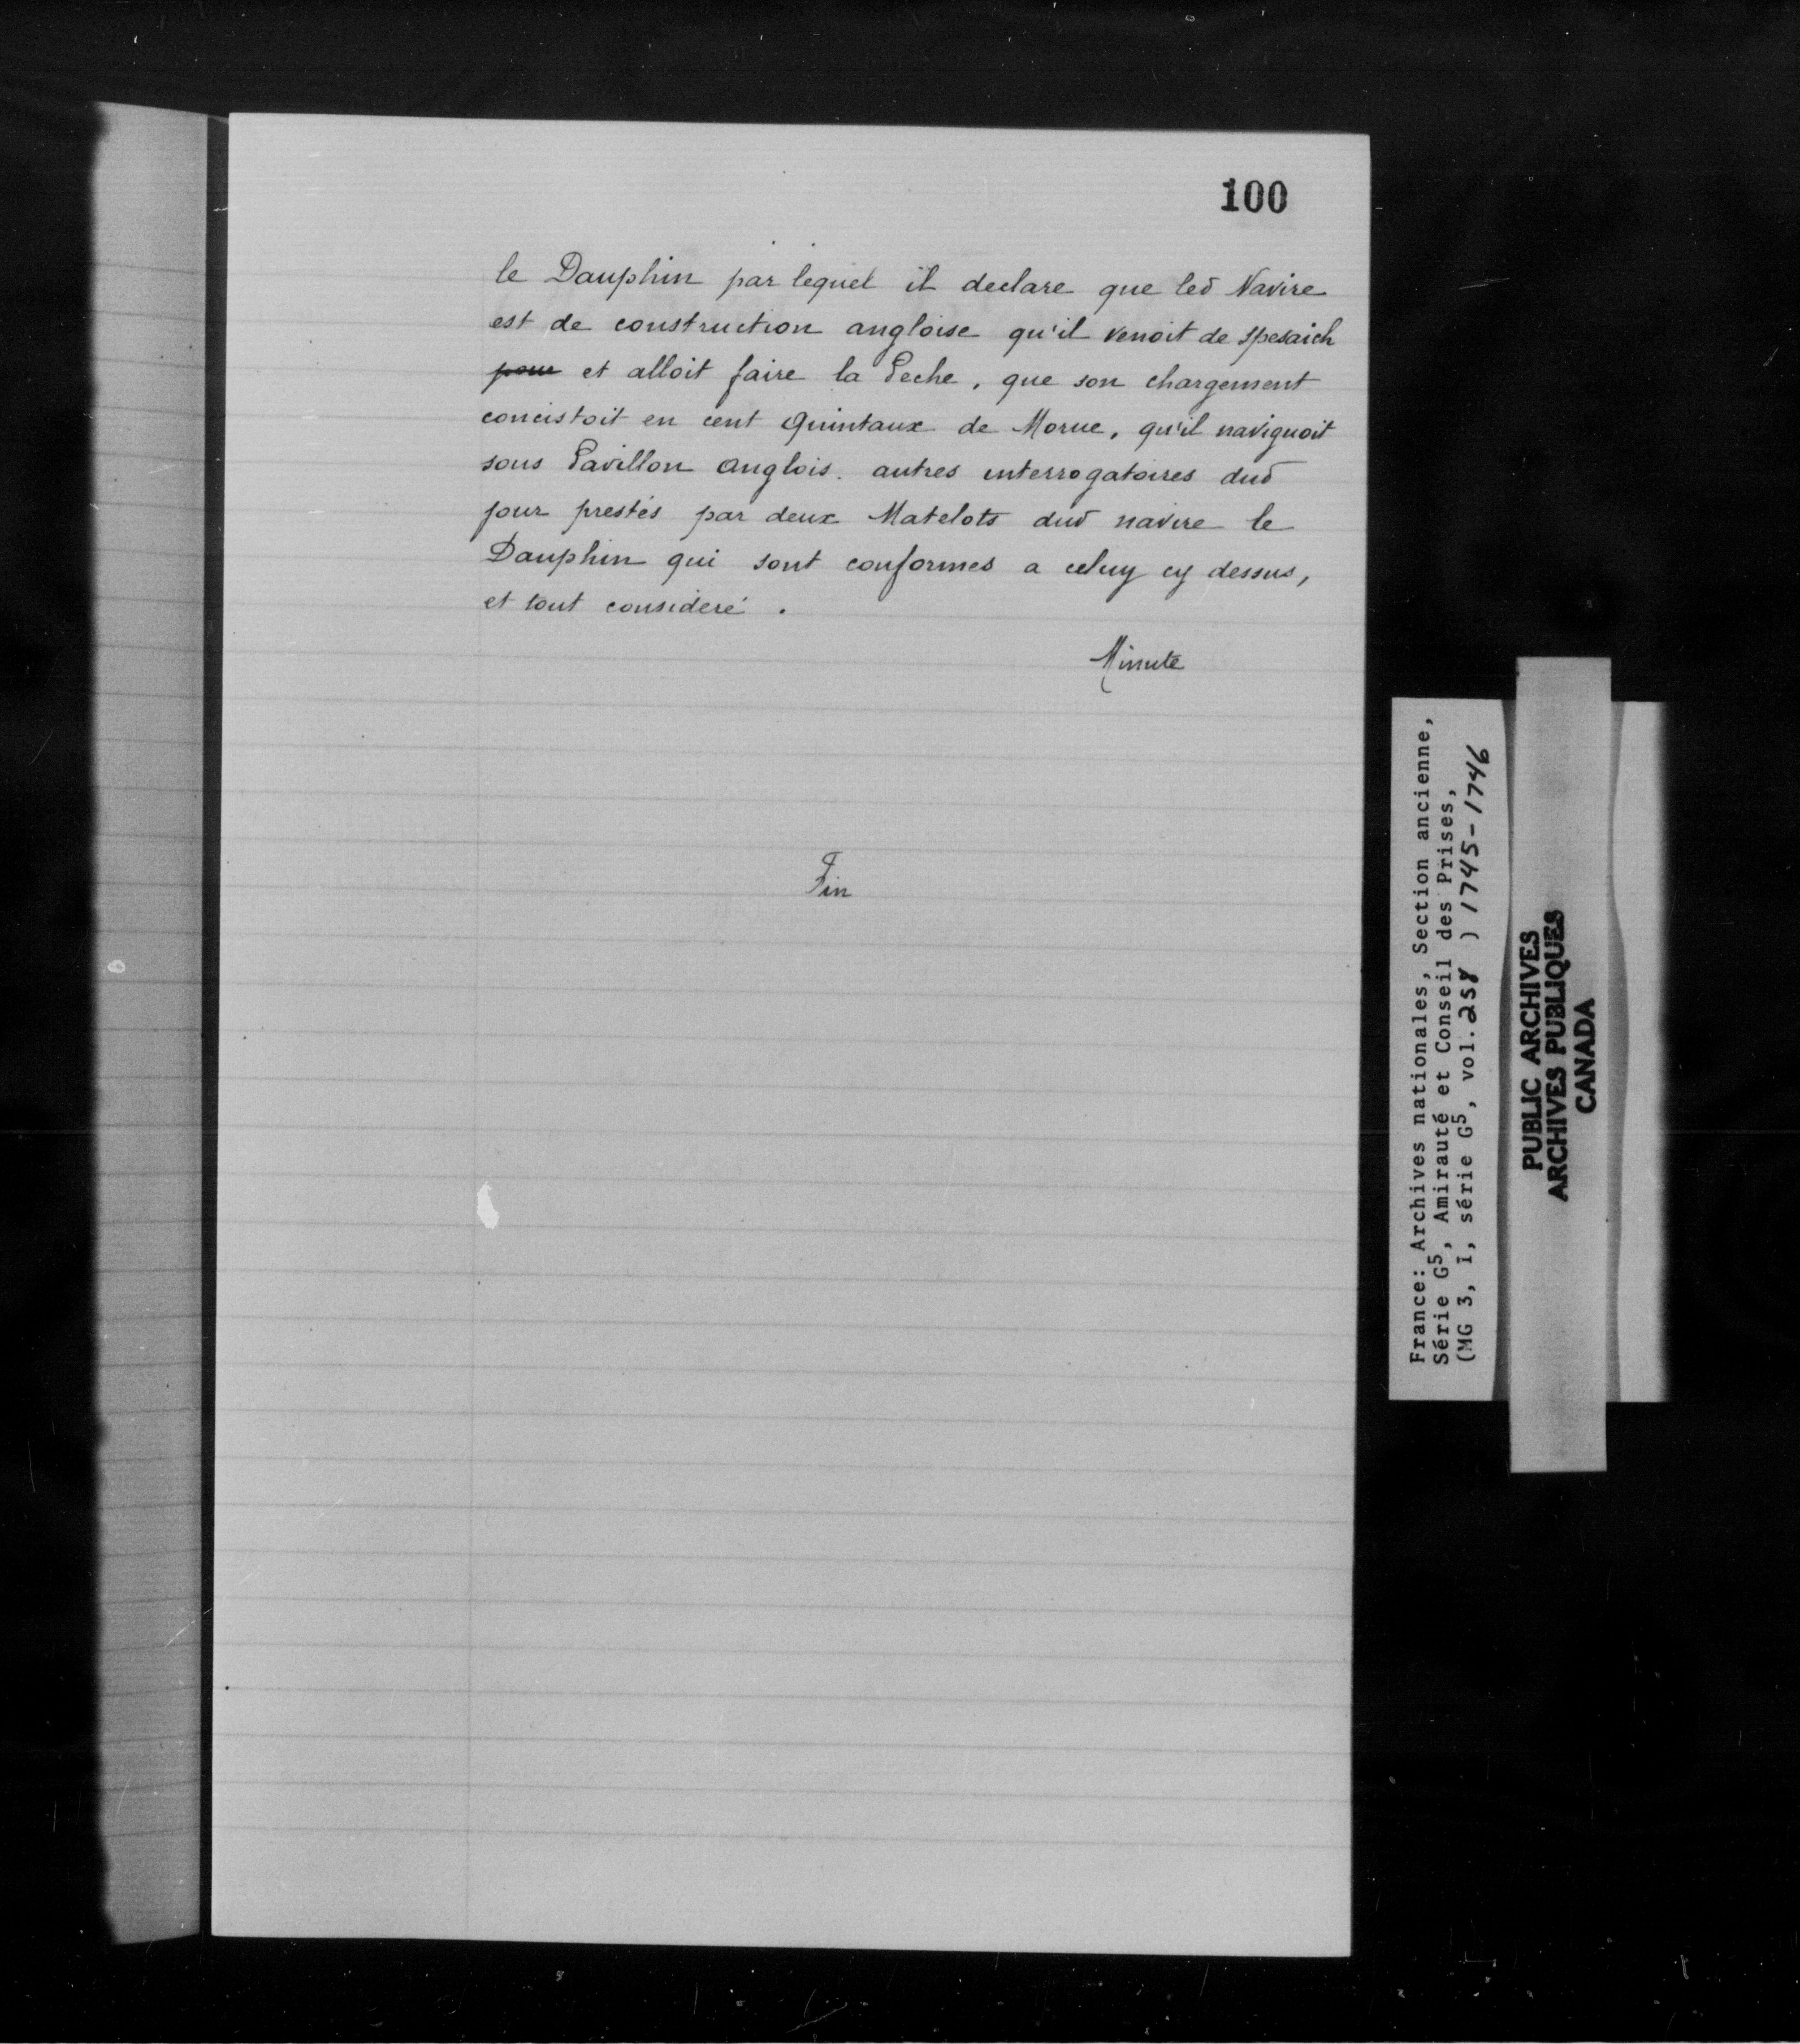 100
le Dauphin par lequel il declare que led Navire
est de construction angloise qu'il venoit de spesaich
pour et alloit faire la Peche, que son chargement
concistoit en cent Quintaux de Morue, qu'il naviguoit
sous Pavillon anglois. autres interrogatoires dud
jour prestés par deux Matelots dud navire le
Dauphin qui sont conformes a celuy cy dessus,
et tout consideré.
Minute
Fin
France: Archives nationales, Section ancienne,
Série G5, Amirauté et Conseil des Prises,
(MG 3, I, série G5, vol. 258 ) 1745-1746
PUBLIC ARCHIVES
ARCHIVES PUBLIQUES
CANADA